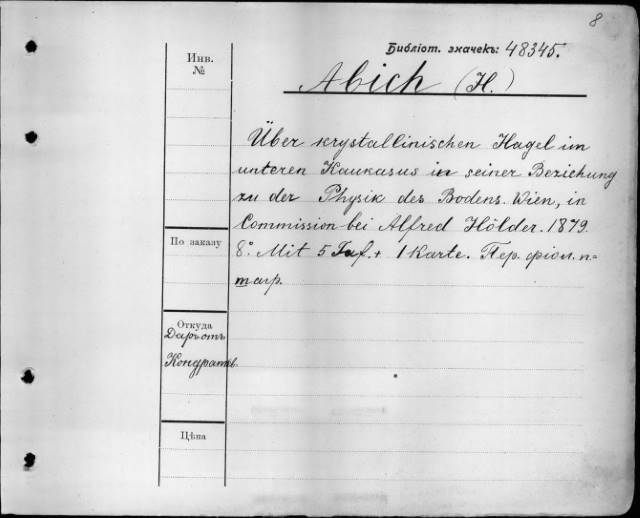 8
Библіот. значекъ: 48345.
Инв.
№
Abich (H.)
Über krystallinischen Hagel im
unteren Kaukasus in seiner Beziehung
zu der Physik des Bodens. Wien, in
Commission bei Alfred Hölder. 1879.
8.° Mit 5 Taf. + 1 Karte. Пер. фіол. п=
магр.
По заказу
Откуда
Даръ отъ
Кондратов.
Цѣна